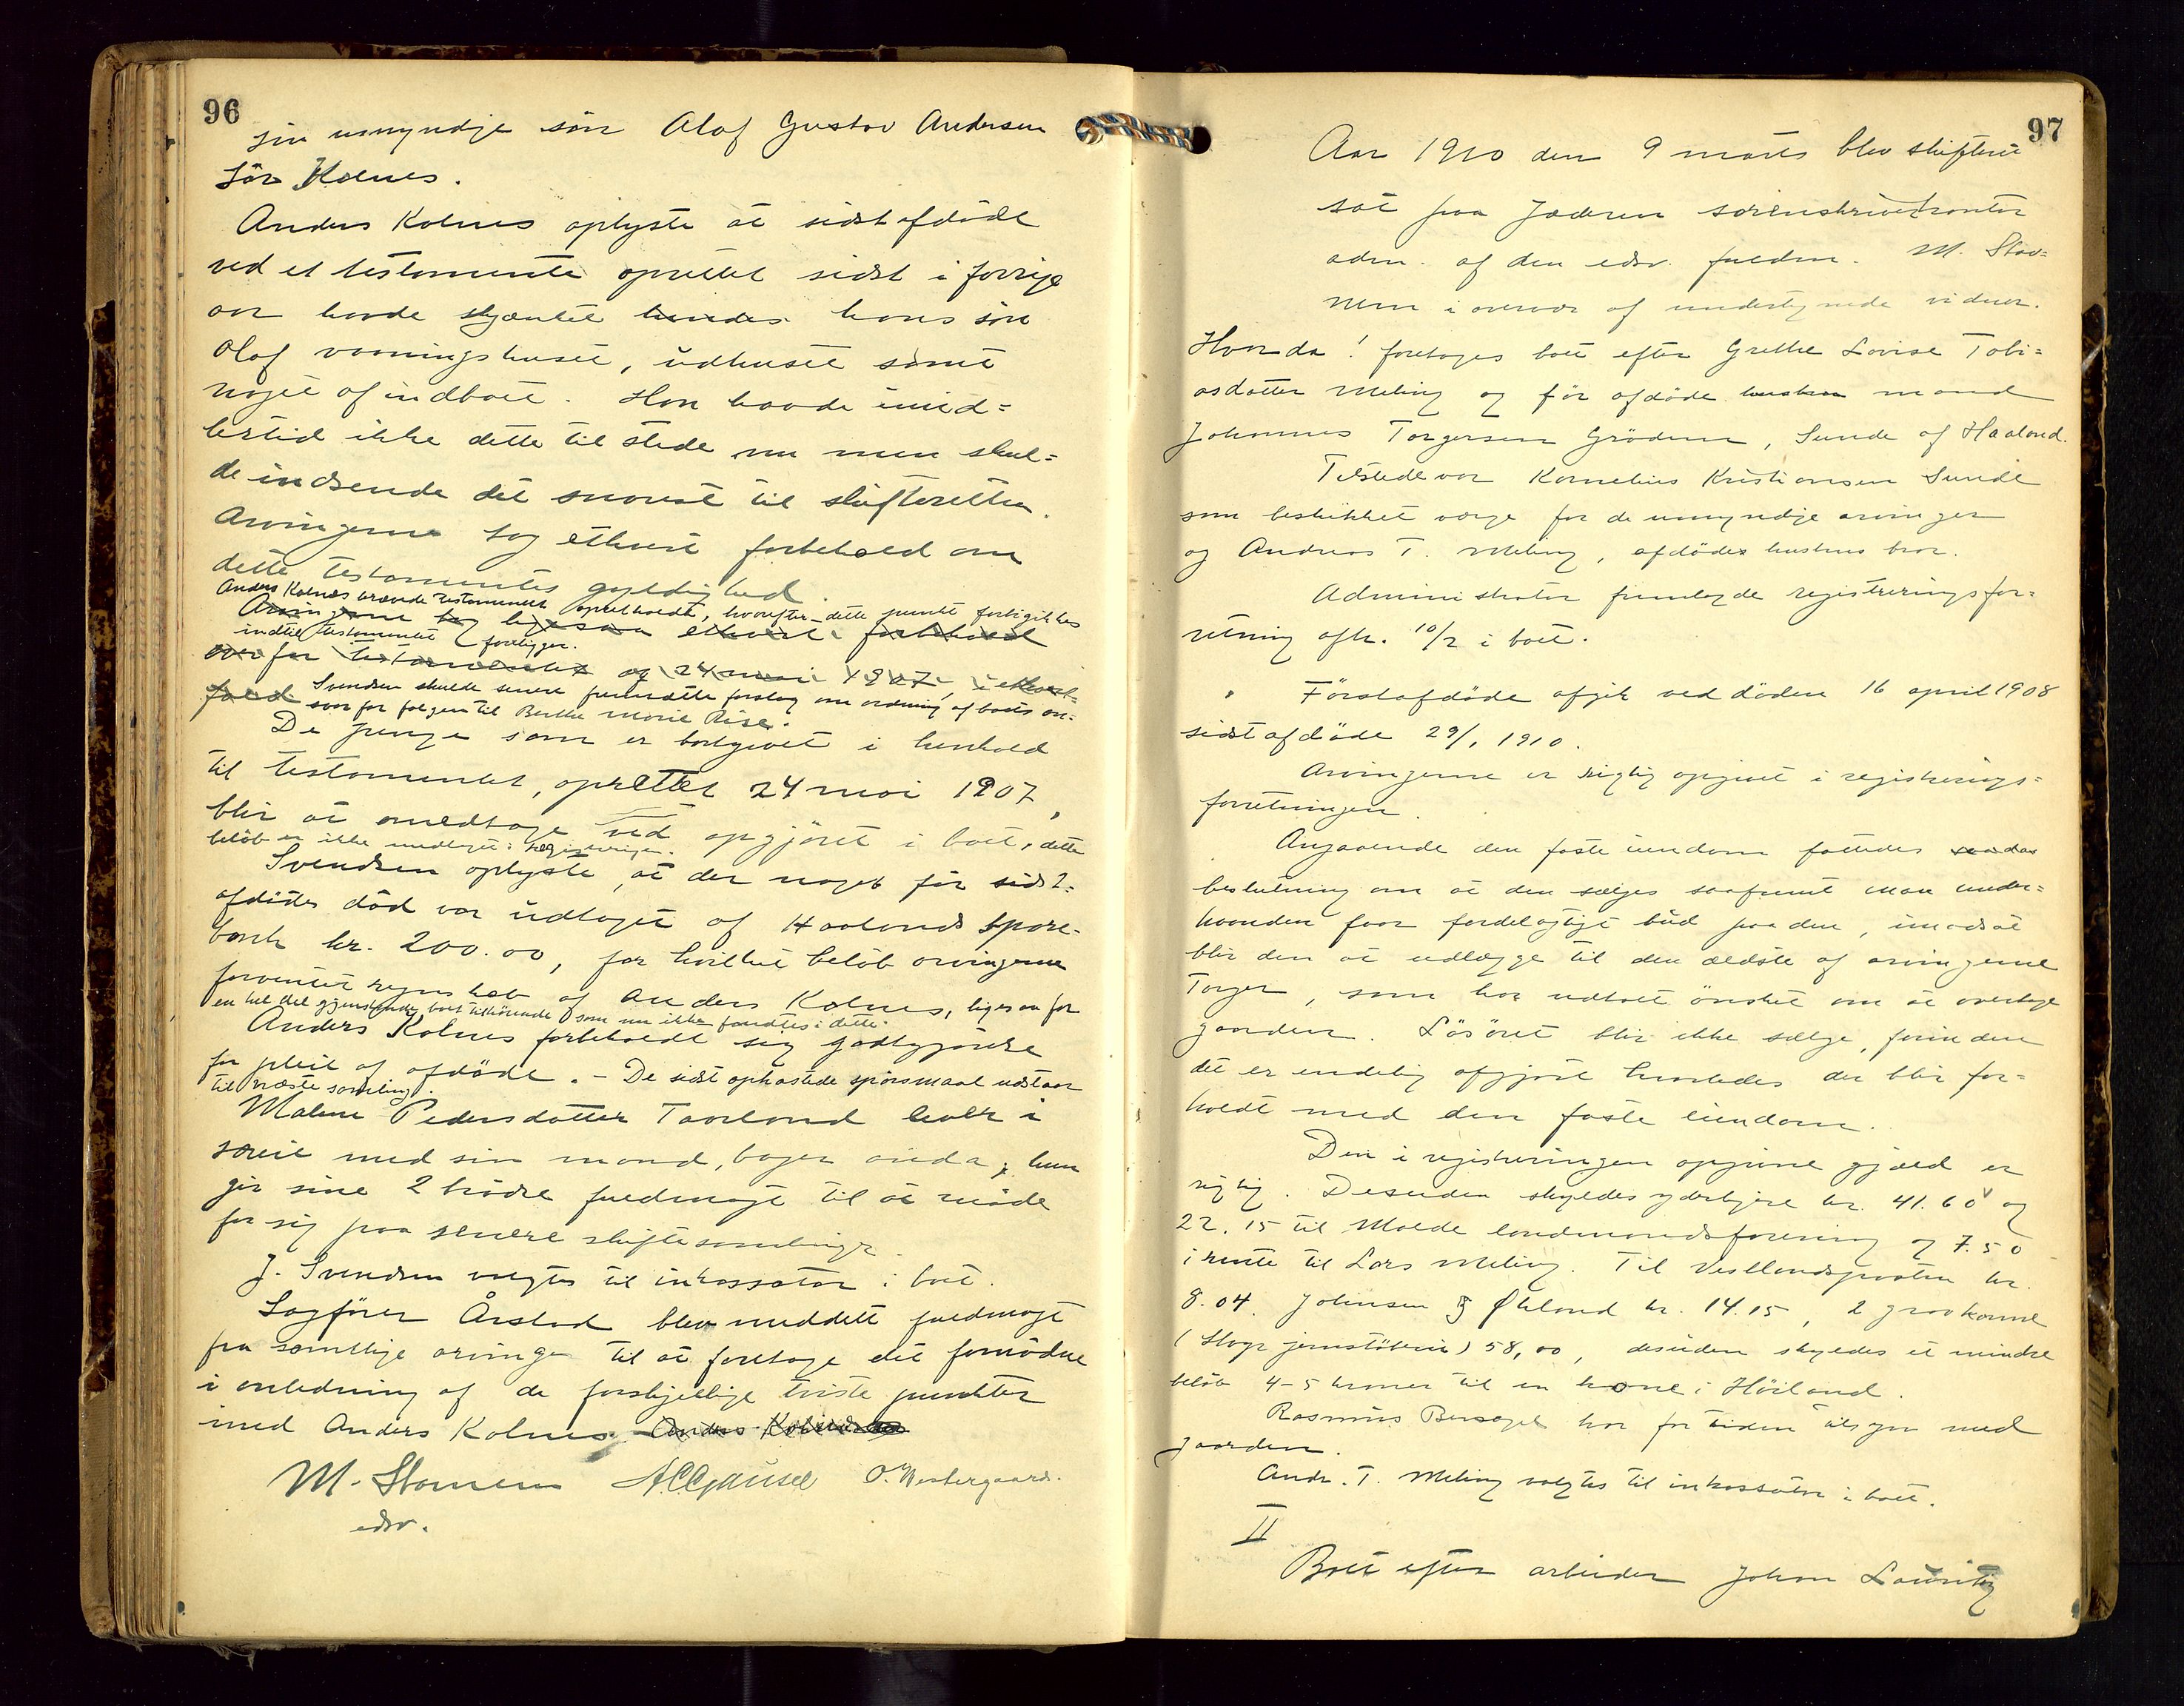 96
sin umyndige sön Olaf Gustav Andersen
Sör Kolnes.
Anders Kolnes oplyste at sidstafdöde
ved et testamente oprettet sidst i forrige
aar havde skjænket hendes hans sön
Olaf vaaningshuset, udhuset samt
noget af indboet. Han havde imid=
lertid ikke dette til stede nu men skul=
de indsende det snarest til skifteretten.
Arvingerne tog ethvert forbehold om
dette testamentes gyldighed.
Anders Kolnes krævede testamentet opretholdt, hvorefter dette punkt forbigikkes
Arvingerne tog ligesaa ethvert forbehold
indtil testamentet foreligger.
overfor testamentet af 24 mai 1907, i ethvert
Svendsen skulde senere fremsætte forslag om ordning af boets an-
fald
svar for følgen til Berthe Marie Riise.
De penge som er bortgivet i henhold
til testamentet, oprettet 24 mai 1907,
blir at medtage ved opgjöret i boet, dette
belöb er ikke medtaget i registreringen.
Svendsen oplyste, at der noget för sidst=
afdödes död var udtaget af Haalands spare-
bank kr. 200.00, for hvilket belöb arvingerne
forventer regnskab af Anders Kolnes, ligesaa for
en hel del gjenstande boet tilhörende som nu ikke fandtes i dette.
Anders Kolnes forbeholdt sig godtgjörelse
for pleie af afdöde. – De sidst opkastede spörsmaal udstaar
til næste samling
Malene Pedersdatter Taarland lever i
særeie med sin mand, bager Aüda; hun
gir sine 2 brödre fuldmagt til at möde
for sig paa senere skiftesamlinger.
J. Svendsen valgtes til inkassator i boet.
Sagförer Årstad blev meddelt fuldmagt
fra samtlige arvinger til at foretage det fornödne
i anledning af de forskjellige tviste punkter
med Anders Kolnes. Anders Kolnes
M. Stornem A.C. Gausel O. Westergaard.
edsv.
97
Aar 1910 den 9 marts blev skifteret
sat paa Jæderen sorenskriverkontor
adm. af den edsv. fuldm. M. Stor=
nem i overvær af undertegnede vidner.
Hvor da! foretoges boet efter Grethe Lovise Tobi=
asdatter Meling og för afdöde hustru mand
Johannes Torgersen Gröden, Sunde af Haaland.
Tilstede var Kornelius Kristiansen Sunde
som beskikket verge for de umyndige arvinger
og Andreas T. Meling, afdödes hustrus bror.
Administrator fremlagde registreringsfor=
retning afh. 10/2 i boet.
Förstafdöde afgik ved döden 16 april 1908
sidstafdöde 29/1 1910.
Arvingerne er rigtig opgivet i registrerings=
forretningen.
Angaaende den faste eiendom fattedes saadan
beslutning om at den sælges saafremt man under=
haanden faar fordelagtigt bud paa den, imodsat
blir den at udlægge til den ældste af arvingerne
Torger, som har udtalt önsket om at overtage
gaarden. Lösöret blir ikke sælge, förinden
det er endelig afgjort hvorledes der blir for=
holdt med den faste eiendom.
Den i registreringen opgivne gjæld er
rigtig. Desuden skyldes yderligere kr. 41.60 og
22.15 til Malde landmandsforening og 7.50
i rente til Lars Meling. Til Vestlandsposten kr.
8.04. Johnsen & Økland kr. 14.15, 2 gravkorme
(Stavgr jernstöberi) 58,00, desuden skyldes et mindre
belöb 4-5 kroner til en kone i Höiland.
Rasmus Bersagel har for tiden tilsyn med
gaarden.
Andr. T. Meling valgtes til inkassator i boet.
II
Boet efter arbeider Johan Lauritz